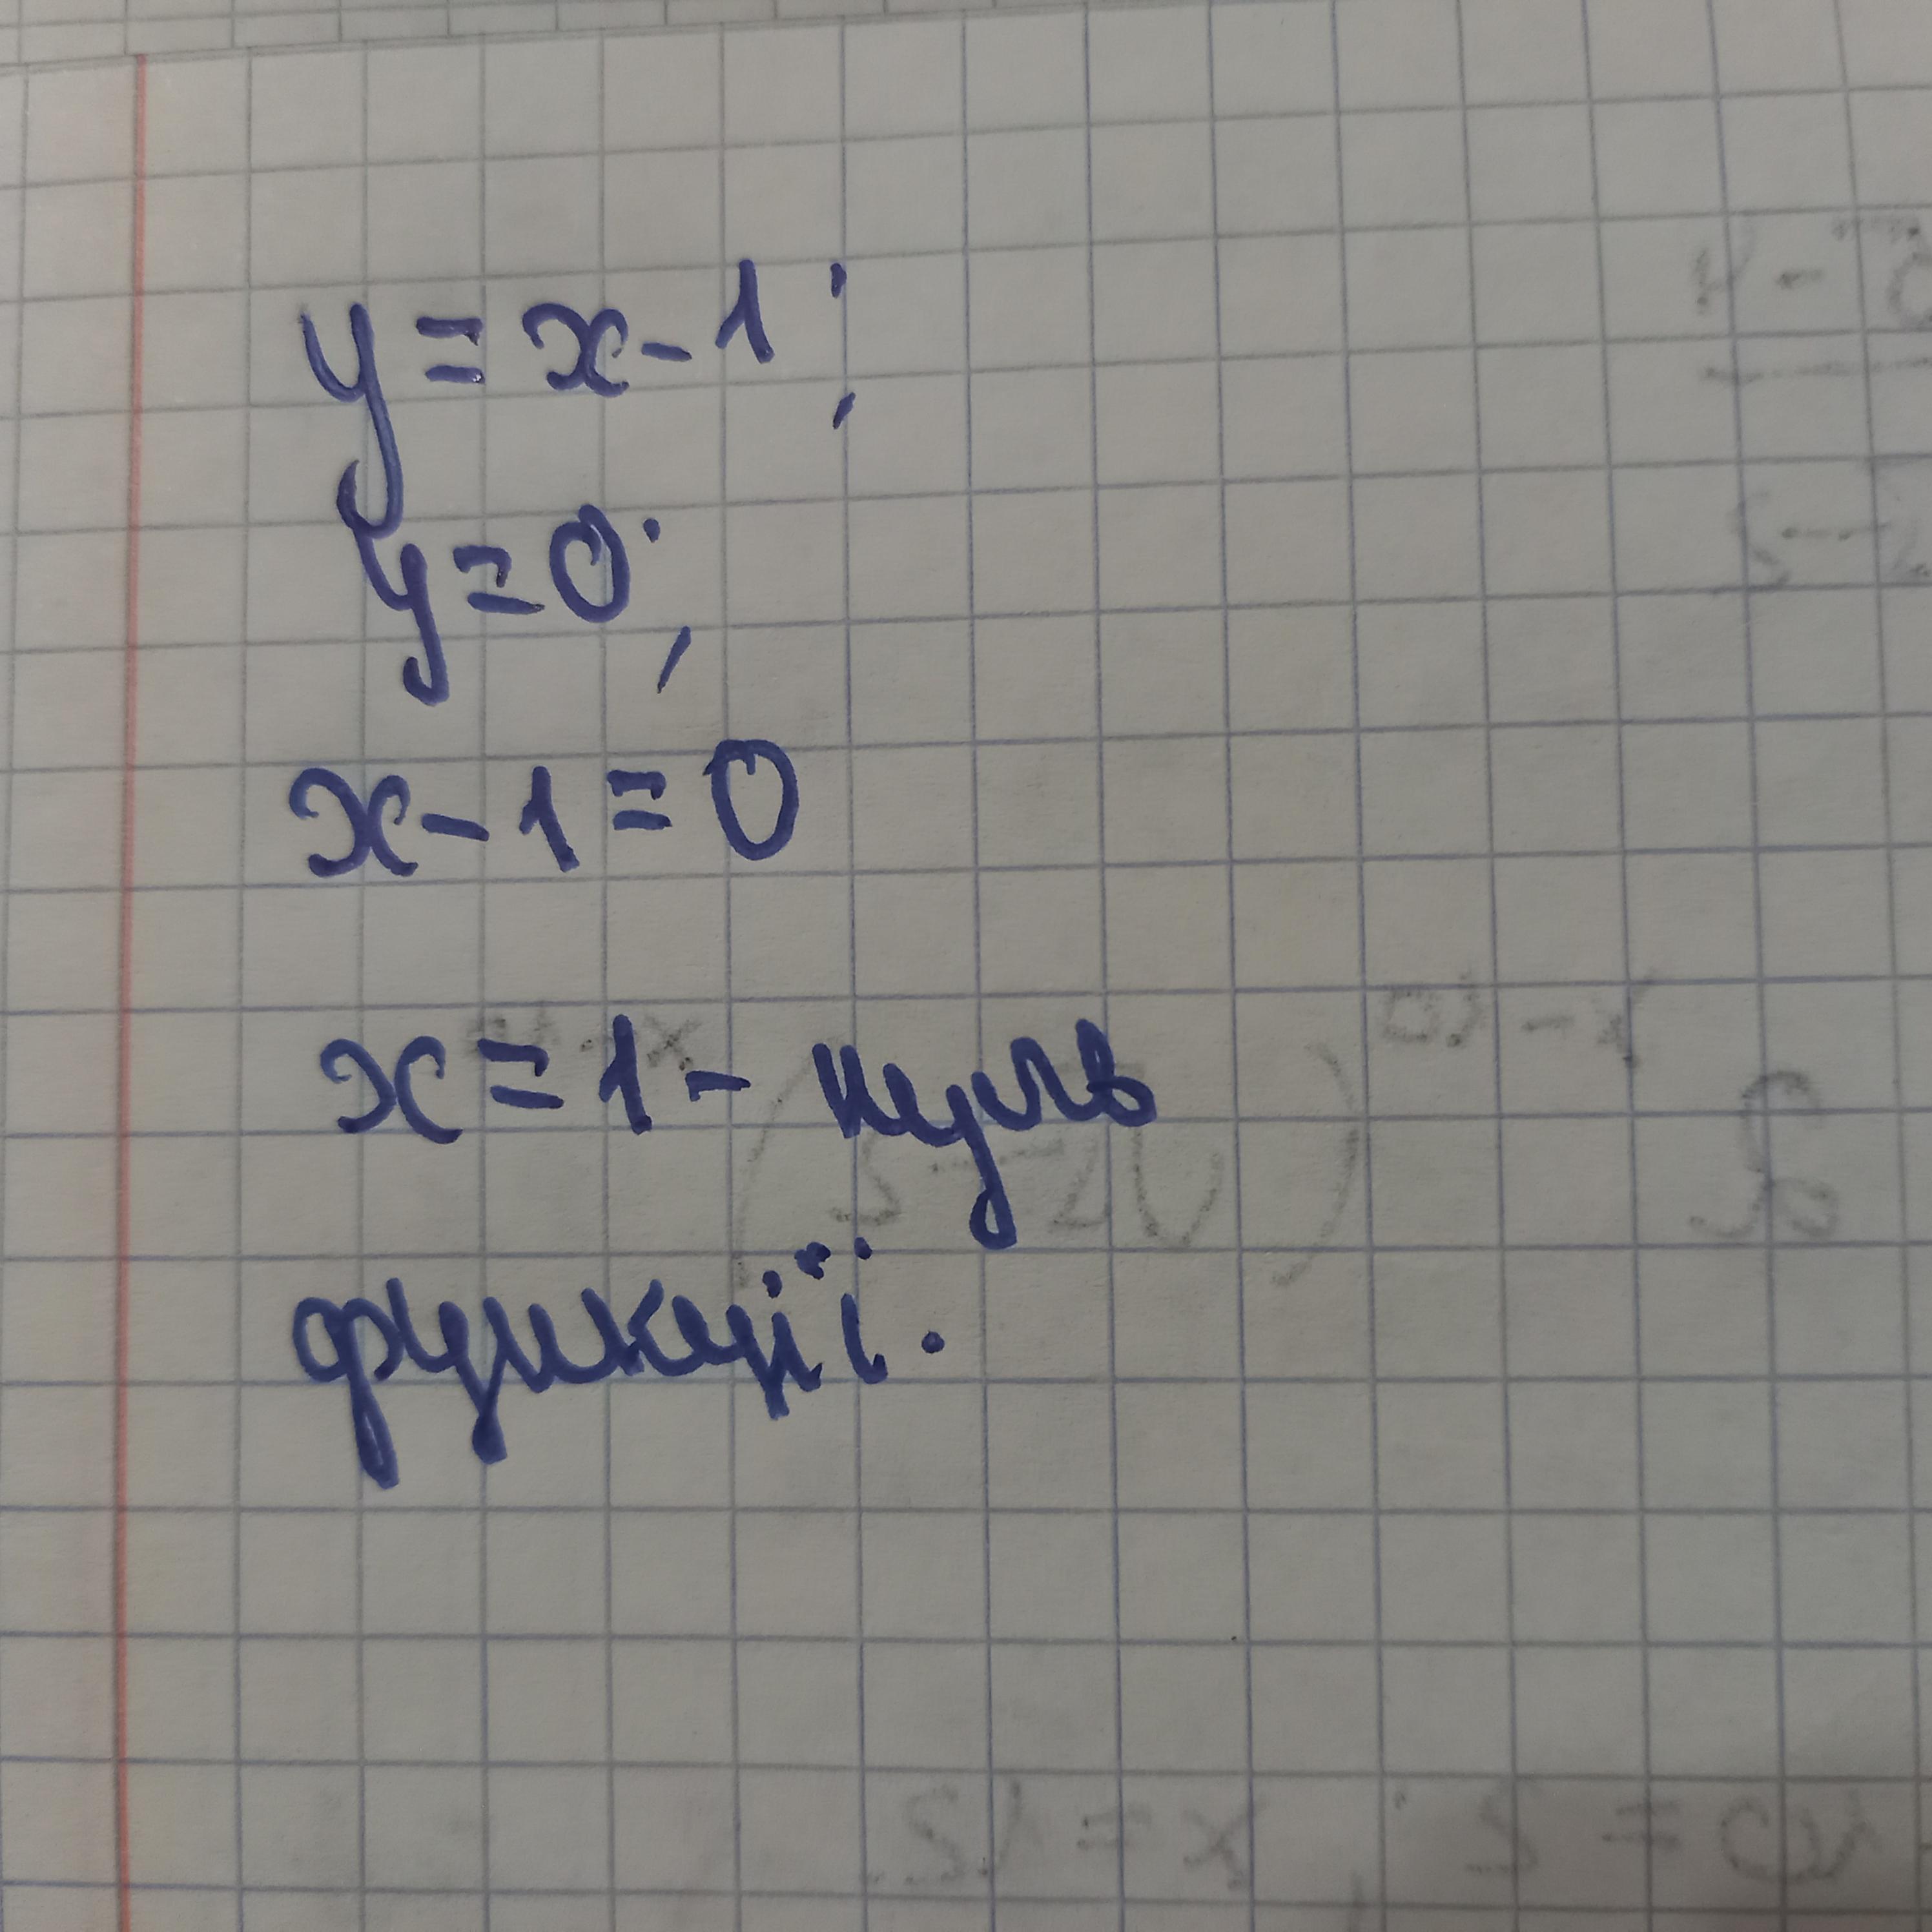 y = x - 1;
y = 0;
x - 1 = 0
x = 1 - нуль
функції.